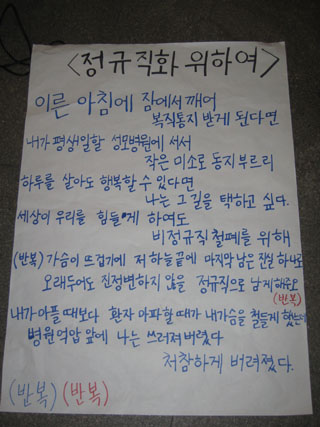 <정규직화 위하여>
이른 아침에 잠에서 깨어
복직통지 받게 된다면
내가 평생일할 성모병원에 서서
작은 미소로 동지부르리
하루를 살아도 행복할 수 있다면
나는 그 길을 택하고 싶다.
세상이 우리를 힘들게 하여도
비정규직철폐를 위해
(반복) 가슴이 뜨겁기에 저 하늘끝에 마지막 남은 진실 하나로
오래두어도 진정변하지 않을 정규직으로 남게해주오
(반복)
내가 아플 때보다 환자 아파할 때가 내가슴을 철들게 했는데
병원억압 앞에 나는 쓰러져버렸다
처참하게 버려졌다.
(반복) (반복)